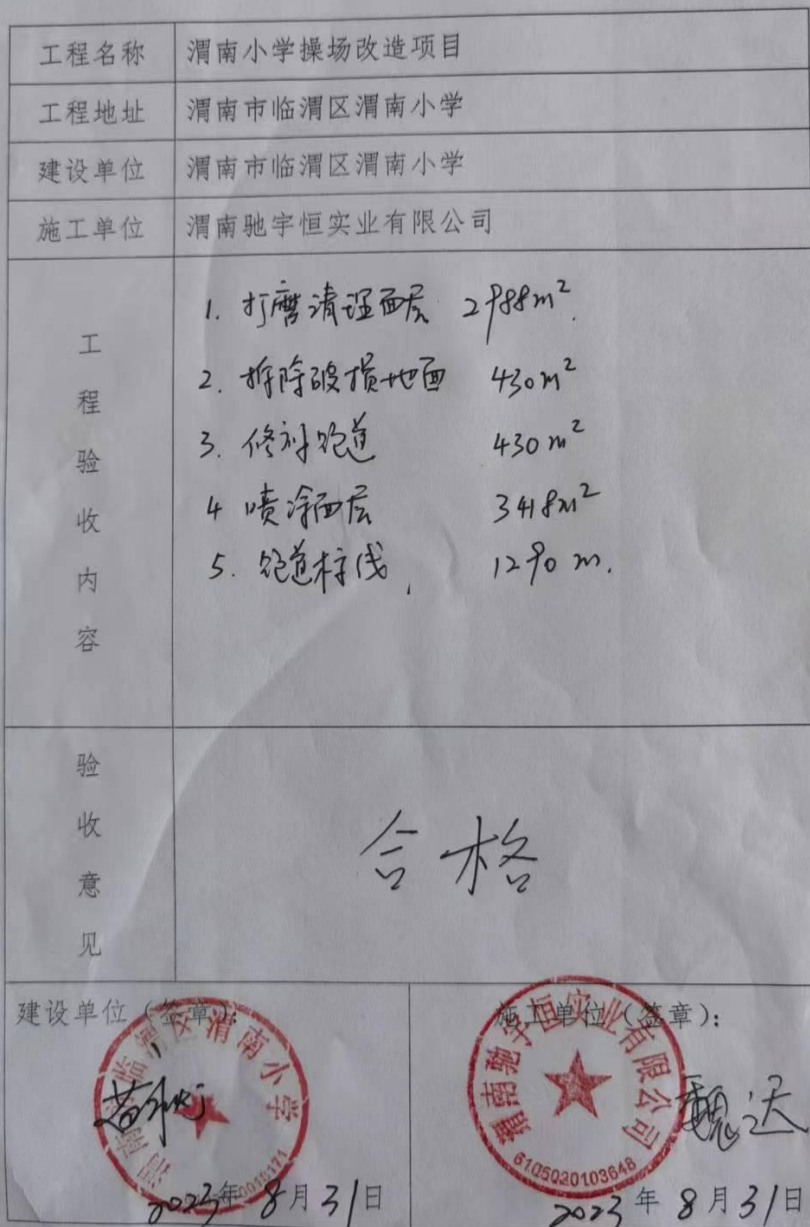 工程名称 渭南小学操场改造项目
工程地址 渭南市临渭区渭南小学
建设单位 渭南市临渭区渭南小学
施工单位 渭南驰宇恒实业有限公司
工程验收内容
1. 打磨清理面层 2988m²
2. 拆除破损地面 430m²
3. 修补跑道 430m²
4 喷涂面层 3418m²
5. 跑道标线 1290m.
验收意见
合格
建设单位（签章）： 施工单位（签章）：
渭南 临渭区渭南小学
渭南驰宇恒实业有限公司
6105020103648
魏达
2023年8月31日 2023年8月31日